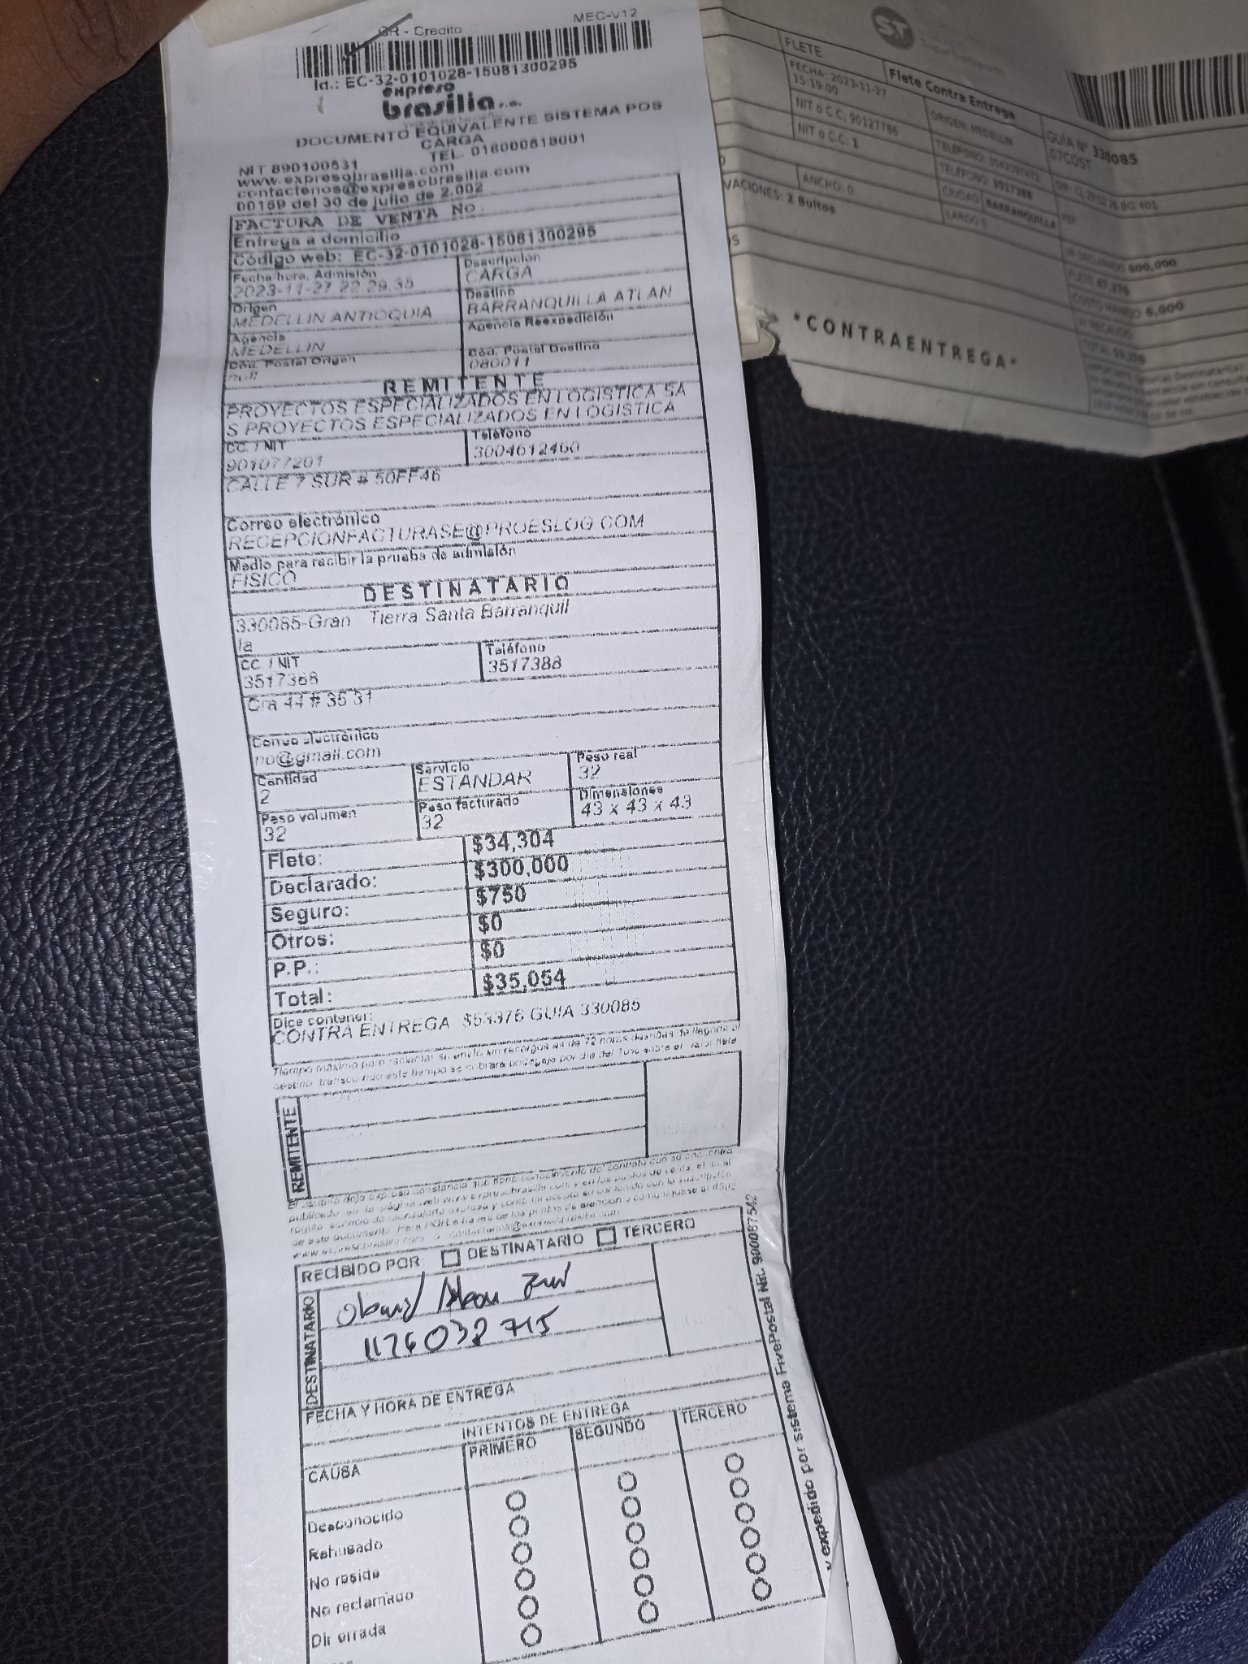 GR - Credito
MEC-V12
Id.: EC-32-0101028-15081300295
expreso
brasilia s.a.
DOCUMENTO EQUIVALENTE SISTEMA POS
CARGA
TEL. 018000518001
NIT 890100531
www.expresobrasilia.com
contactenos@expresobrasilia.com
00159 del 30 de julio de 2.002
FACTURA DE VENTA No.
Entrega a domicilio
Código web: EC-32-0101028-15081300295
Fecha hora. Admisión
2023-11-27 22:29:35
Descripcion
CARGA
Origen
MEDELLIN ANTIOQUIA
Destino
BARRANQUILLA ATLAN
Agencia
MEDELLIN
Agencia Reexpedición
Cód. Postal Origen
null
Cód. Postal Destino
080011
REMITENTE
PROYECTOS ESPECIALIZADOS EN LOGISTICA SA
S PROYECTOS ESPECIALIZADOS EN LOGISTICA
CC / NIT
901077201
Teléfono
3004612460
CALLE 7 SUR # 50FF46
Correo electrónico
RECEPCIONFACTURASE@PROESLOG.COM
Medio para recibir la prueba de admisión
FISICO
DESTINATARIO
330085-Gran Tierra Santa Barranquil
la
CC / NIT
3517388
Teléfono
3517388
Cra 44 # 35 31
Correo electrónico
no@gmail.com
Cantidad
2
Servicio
ESTANDAR
Peso real
32
Peso volumen
32
Peso facturado
32
Dimensiones
43 x 43 x 43
Flete: $34,304
Declarado: $300,000
Seguro: $750
Otros: $0
P.P.: $0
Total: $35,054
Dice contener:
CONTRA ENTREGA $53376 GUIA 330085
REMITENTE
RECIBIDO POR DESTINATARIO TERCERO
DESTINATARIO
1176032715
FECHA Y HORA DE ENTREGA
INTENTOS DE ENTREGA
CAUSA PRIMERO SEGUNDO TERCERO
Desconocido
Rehusado
No reside
No reclamado
Dir errada
expedido por sistema FivePostal Nit. 900087542
ST
FLETE
Flete Contra Entrega
FECHA: 2023-11-27
15:19:00
ORIGEN: MEDELLIN
GUÍA N° 330085
07COST
NIT o C.C: 90127786
NIT o C.C: 1
TELEFONO: 3517388
CIUDAD: BARRANQUILLA
ANCHO: 0
LARGO: 0
VACIONES: 2 Bultos
600,000
6,000
*CONTRAENTREGA*